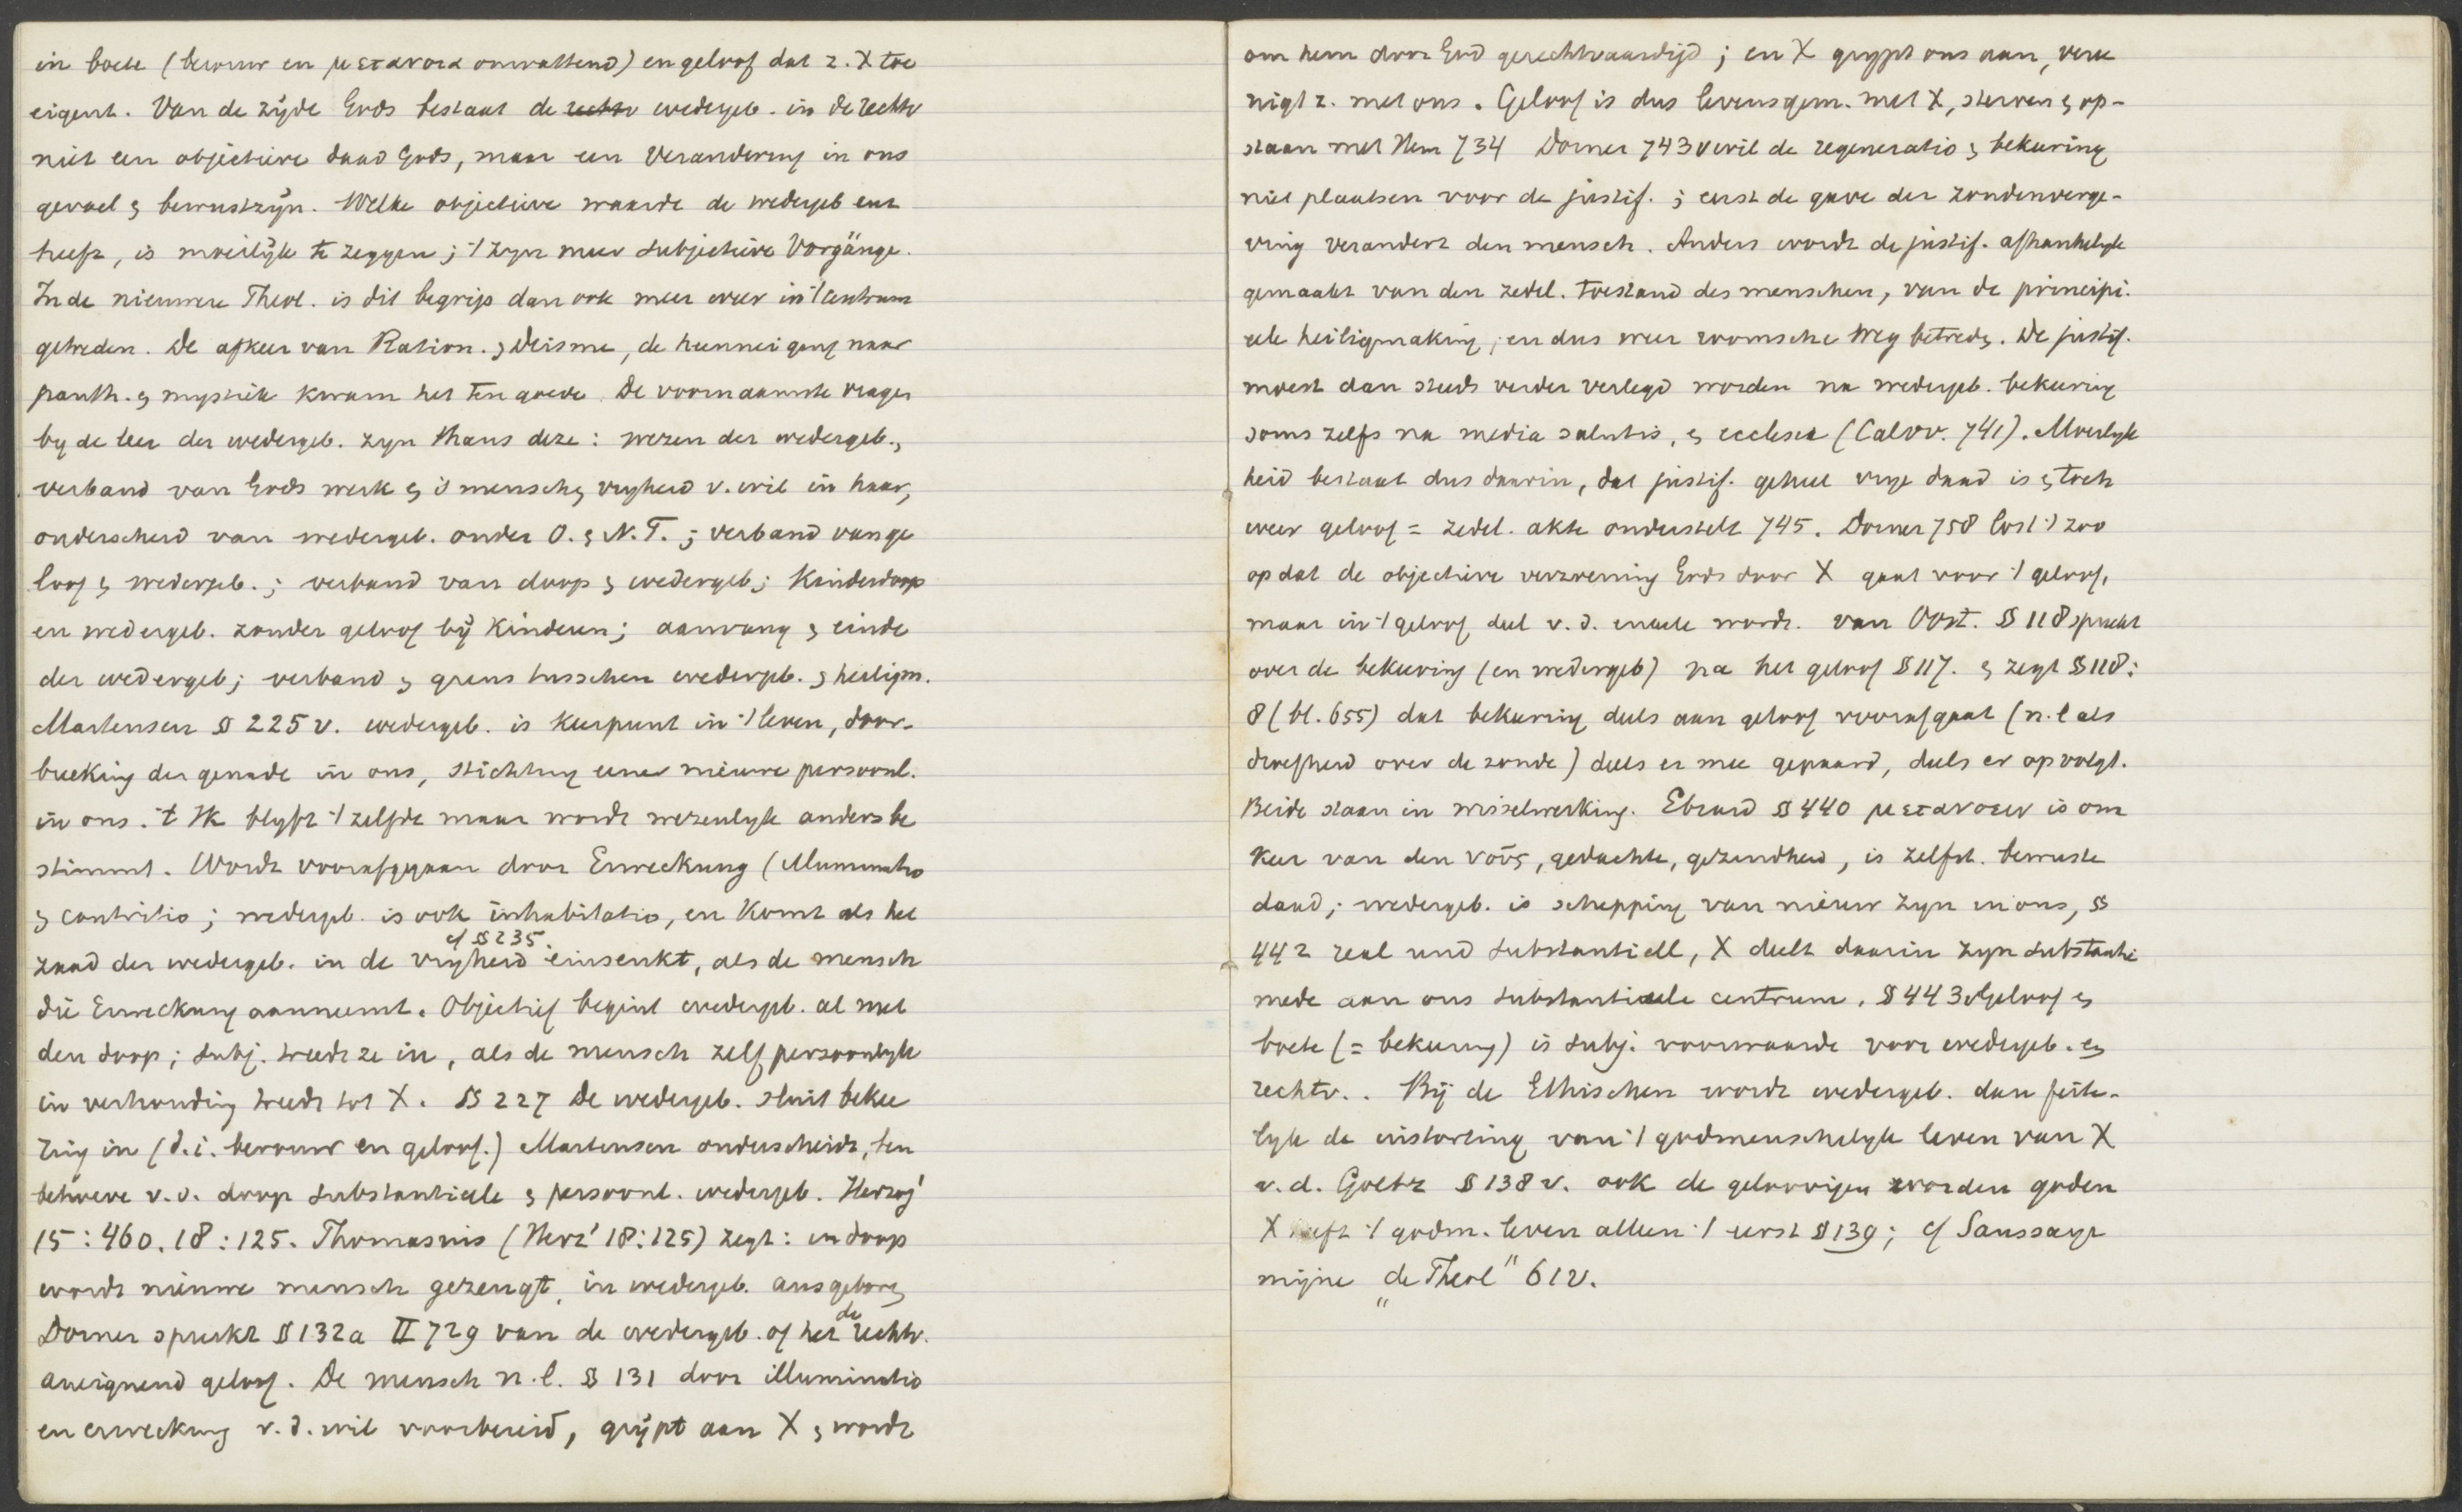 in boete (berouw en μετανοια omvattend) en geloof dat z. X toe
eigent. Van de zijde Gods bestaat de rechtv wedergeb. in de rechtv
niet een objectieve daad Gods, maar een Verandering in ons
gevoel & bewustzijn. Welke objectieve waarde de wedergeb
heeft, is moeilijk te zeggen; 't zijn meer subjectieve Vorgänge.
In de nieuwere Theol. is dit begrip dan ook meer weer in 't centrum
getreden. De afkeer van Ration. & Deisme, de henneiging naar
panth. & mystiek kwam het ten goede. De voornaamste vragen
by de leer der wedergeb. zyn thans deze: wezen der wedergeb.,
verband van Gods werk & 's menschen vryheid v. wil in haar,
onderscheid van wedergeb. onder O. & N. T.; verband van ge
loof & wedergeb.; verband van doop & wedergeb; Kinderdoop
en wedergeb. zonder geloof bij Kinderen; aanvang & einde
der wedergeb; verband & grens tusschen wedergeb. & heiligm.
Martensen § 225 v. wedergeb. is keerpunt in 't leven, door-
breeking der genade in ons, stichting eener nieuwe persoonl.
in ons. 't Ik blyft 't zelfde maar wordt wezenlyk anders be
stimmt. Wordt voorafgegaan door Erweckung (illuminatio
& contritio; wedergeb. is ook inhabitatio, en Komt als het
cf § 235.
zaad der wedergeb. in de vryheid einsenkt, als de mensch
die Erweckung aanneemt. Objectief begint wedergeb. al met
den doop; subj. treedt ze in, als de mensch zelf persoonlyk
in verhouding treedt tot X. § 227 De wedergeb. sluit bekee
ring in (d.i. berouw en geloof.) Martensen onderscheidt, ten
behoeve v.d. doop substantieele & persoonl. wedergeb. Herzog'
15:460. 18:125. Thomasius (Herz' 18:125) zegt: in doop
wordt nieuwe mensch gezeugt, in wedergeb. ausgeboren
Dorner spreekt § 132a II 729 van de wedergeb. of het de rechtv.
aneignend geloof. De mensch n.l. § 131 door illuminatio
en erweckung v.d. wil voorbereid, grijpt aan X & wordt
om hem door God gerechtvaardigd; en X grypt ons aan, vere
nigt z. met ons. Geloof is dus levensgem. met X, sterven & op-
staan met Hem 734 Dorner 743v wil de regeneratio & bekeering
niet plaatsen voor de justif.; eerst de gave der zondenverge-
ving verandert den mensch. Anders wordt de justif. afhankelyk
gemaakt van den zedel. toestand des menschen, van de principi.
eele heiligmaking, en dus weer roomsche weg betreden. De justif.
moest dan steeds verder verlegd worden na wedergeb. bekeering
soms zelfs na media salutis, & ecclesia (Calov. 741). Moeilyk
heid bestaat dus daarin, dat justif. geheel vrye daad is & toch
weer geloof = zedel. akte onderstelt 745. Dorner 758 lost 't zoo
op dat de objectieve verzoening Gods door X gaat voor 't geloof,
maar in 't geloof deel v.d. wordt. van Oost. § 118 spreekt
over de bekeering (en wedergeb) na het geloof § 117. & zegt § 118:
8 (bl. 655) dat bekeering deels aan geloof voorafgaat (n.l als
droefheid over de zonde) deels er mee gepaard, deels er op volgt.
Beide staan in wisselwerking. Ebrard § 440 μετανοειν is om
keer van den νοῦς, gedachte, gezindheid, is zelfst. bewuste
daad; wedergeb. is schepping van nieuw zyn in ons, §
442 real und substantiell, X deelt daarin zyn substantie
mede aan ons substantieele centrum. § 443v Geloof &
boete (= bekeering) is subj. voorwaarde voor wedergeb. en
rechtv.. Bij de Ethischen wordt wedergeb. dan feite-
lyk de instorting van 't godmenschelyk leven van X
v.d. Goltz § 138 v. ook de geloovigen worden goden
X heeft 't godm. leven alleen 't eerst § 139; cf Saussaye
mijne „de Theol" 61v.